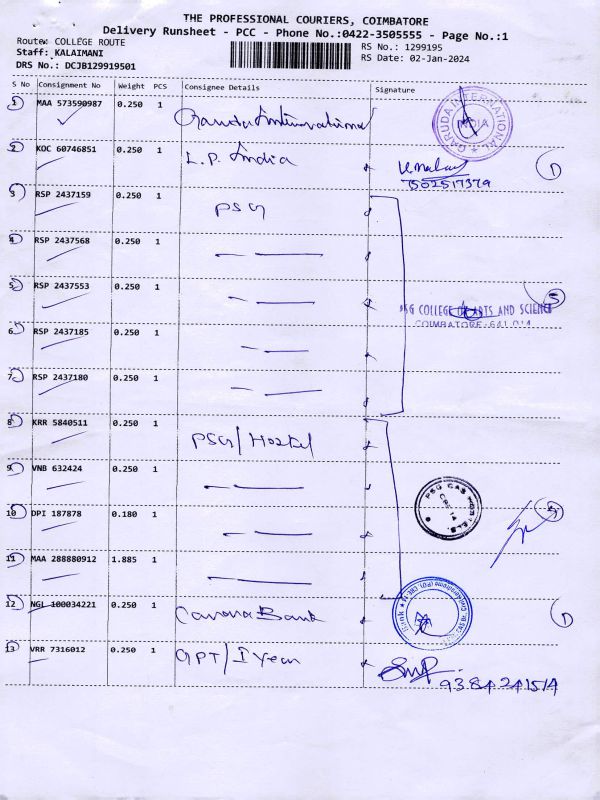 THE PROFESSIONAL COURIERS, COIMBATORE
Delivery Runsheet - PCC - Phone No.:0422-3505555 - Page No.:1
Route: COLLEGE ROUTE
Staff: KALAIMANI
DRS No.: DCJB129919501
RS No.: 1299195
RS Date: 02-Jan-2024
S No Consignment No Weight PCS Consignee Details Signature
1 MAA 573590987 0.250 1 Garuda International
GARUDA INTERNATIONAL INDIA
2 KOC 60746851 0.250 1 L.P. India
7502517379
1
3 RSP 2437159 0.250 1 PSG
4 RSP 2437568 0.250 1
5 RSP 2437553 0.250 1
PSG COLLEGE OF ARTS AND SCIENCE
COIMBATORE-641 014
5
6 RSP 2437185 0.250 1
7 RSP 2437180 0.250 1
8 KRR 5840511 0.250 1 PSG/Hostel
9 VNB 632424 0.250 1
10 DPI 187878 0.180 1
PSG CAS HOSTELS
11 MAA 288880912 1.885 1
12 NGL 100034221 0.250 1 Canara Bank
1
13 VRR 7316012 0.250 1 GPT/I Year
9384241514